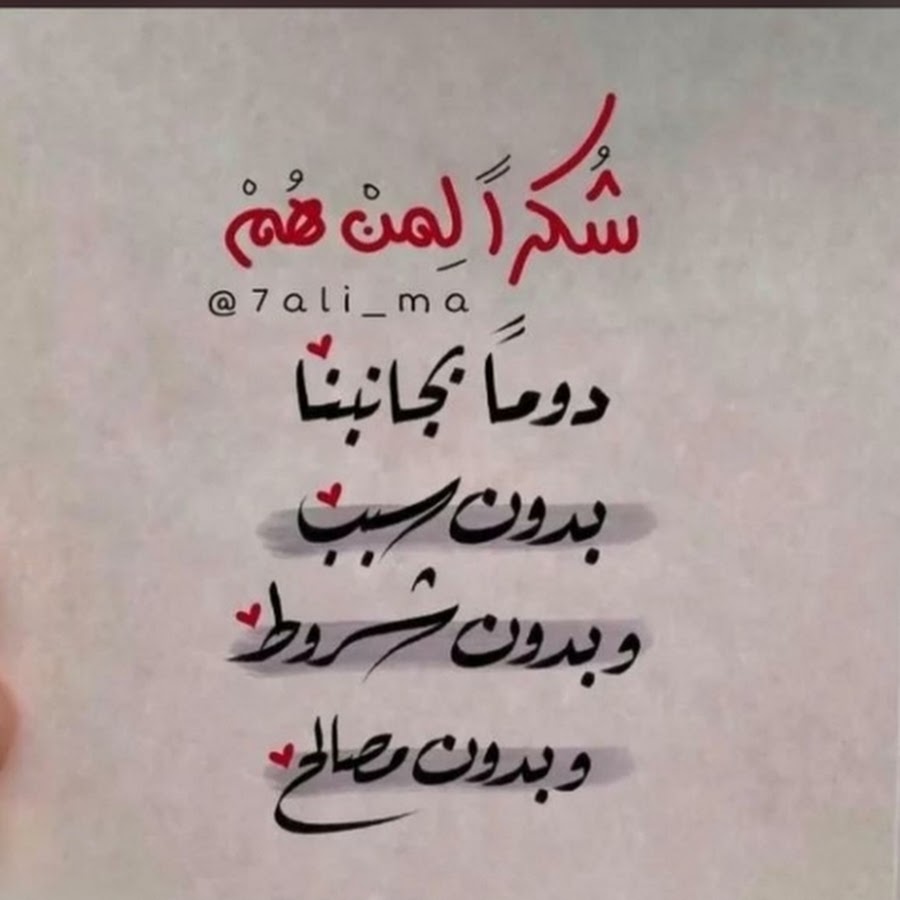 شُكراً لِمنْ هُمْ
@7ali_ma
دوماً بجانبنا
بدون سبب
وبدون شروط
وبدون مصالح